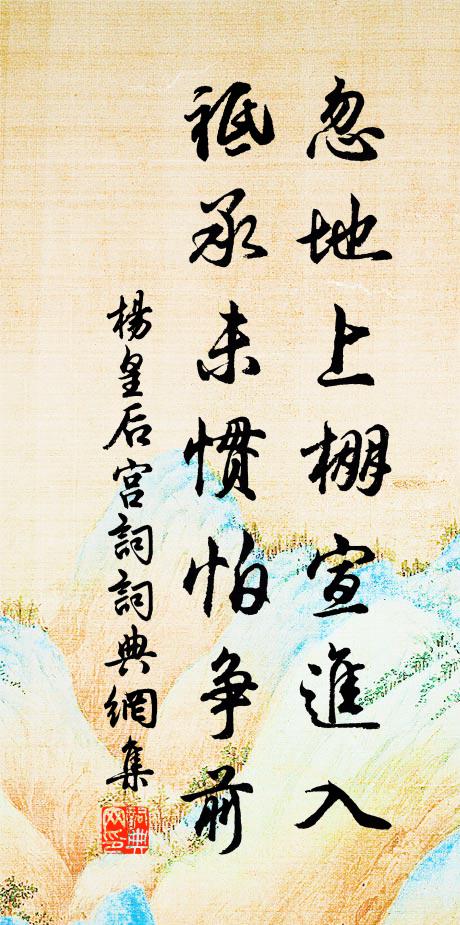 忽地上棚宣進入
祗承未慣怕争前
楊皇后宫詞詞典網集
詞典網印